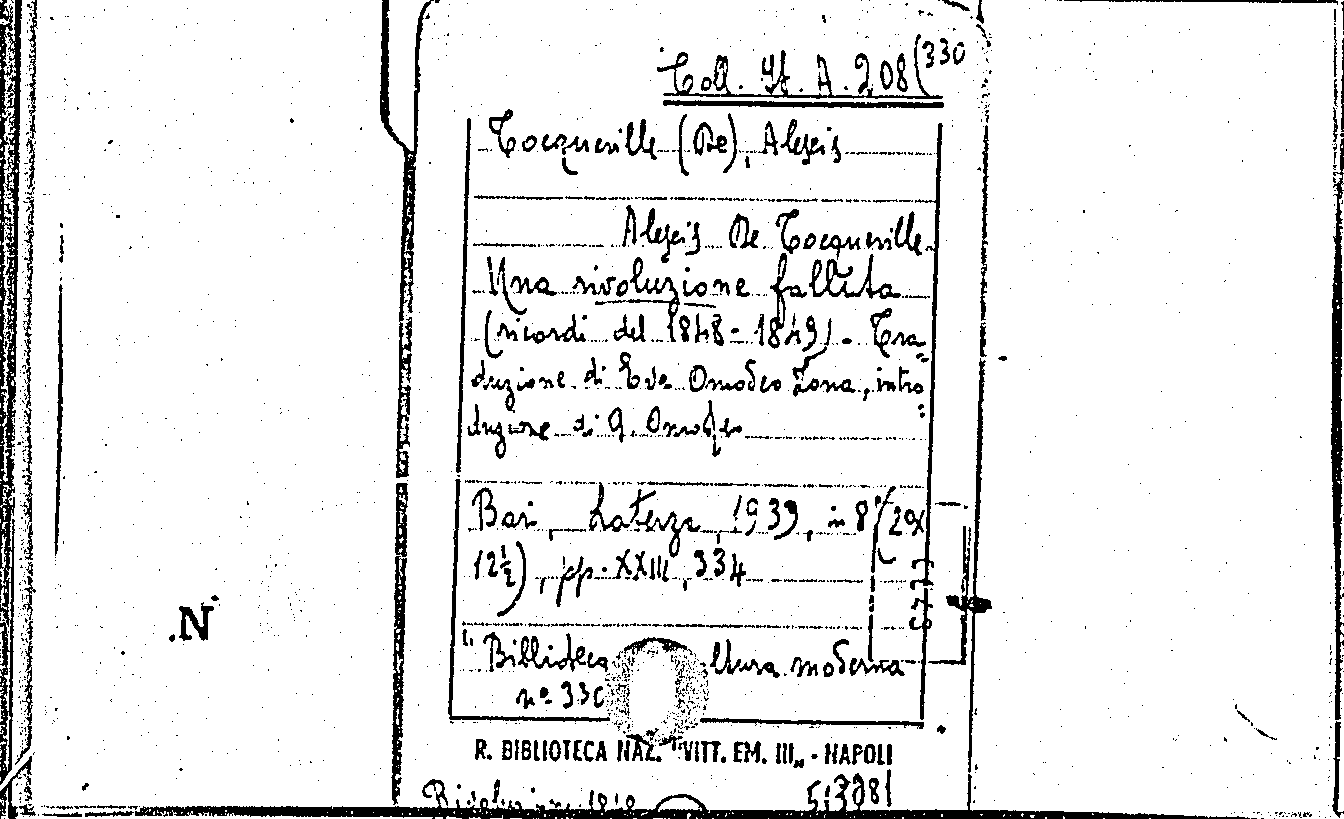 Coll. It. A. 208(330
Tocqueville (De), Alexis
Alexis De Tocqueville
Una rivoluzione fallita
(ricordi del 1848-1849). Tra=
duzione di Eva Omodeo Zona, intro=
duzione di A. Omodeo
Bari, Laterza, 1939, in 8° (20x
12½), pp. XXIII, 334
"Biblioteca ltura moderna
nº 330
R. BIBLIOTECA NAZ. "VITT. EM. III„ - NAPOLI
Rivoluzione 1848
.N